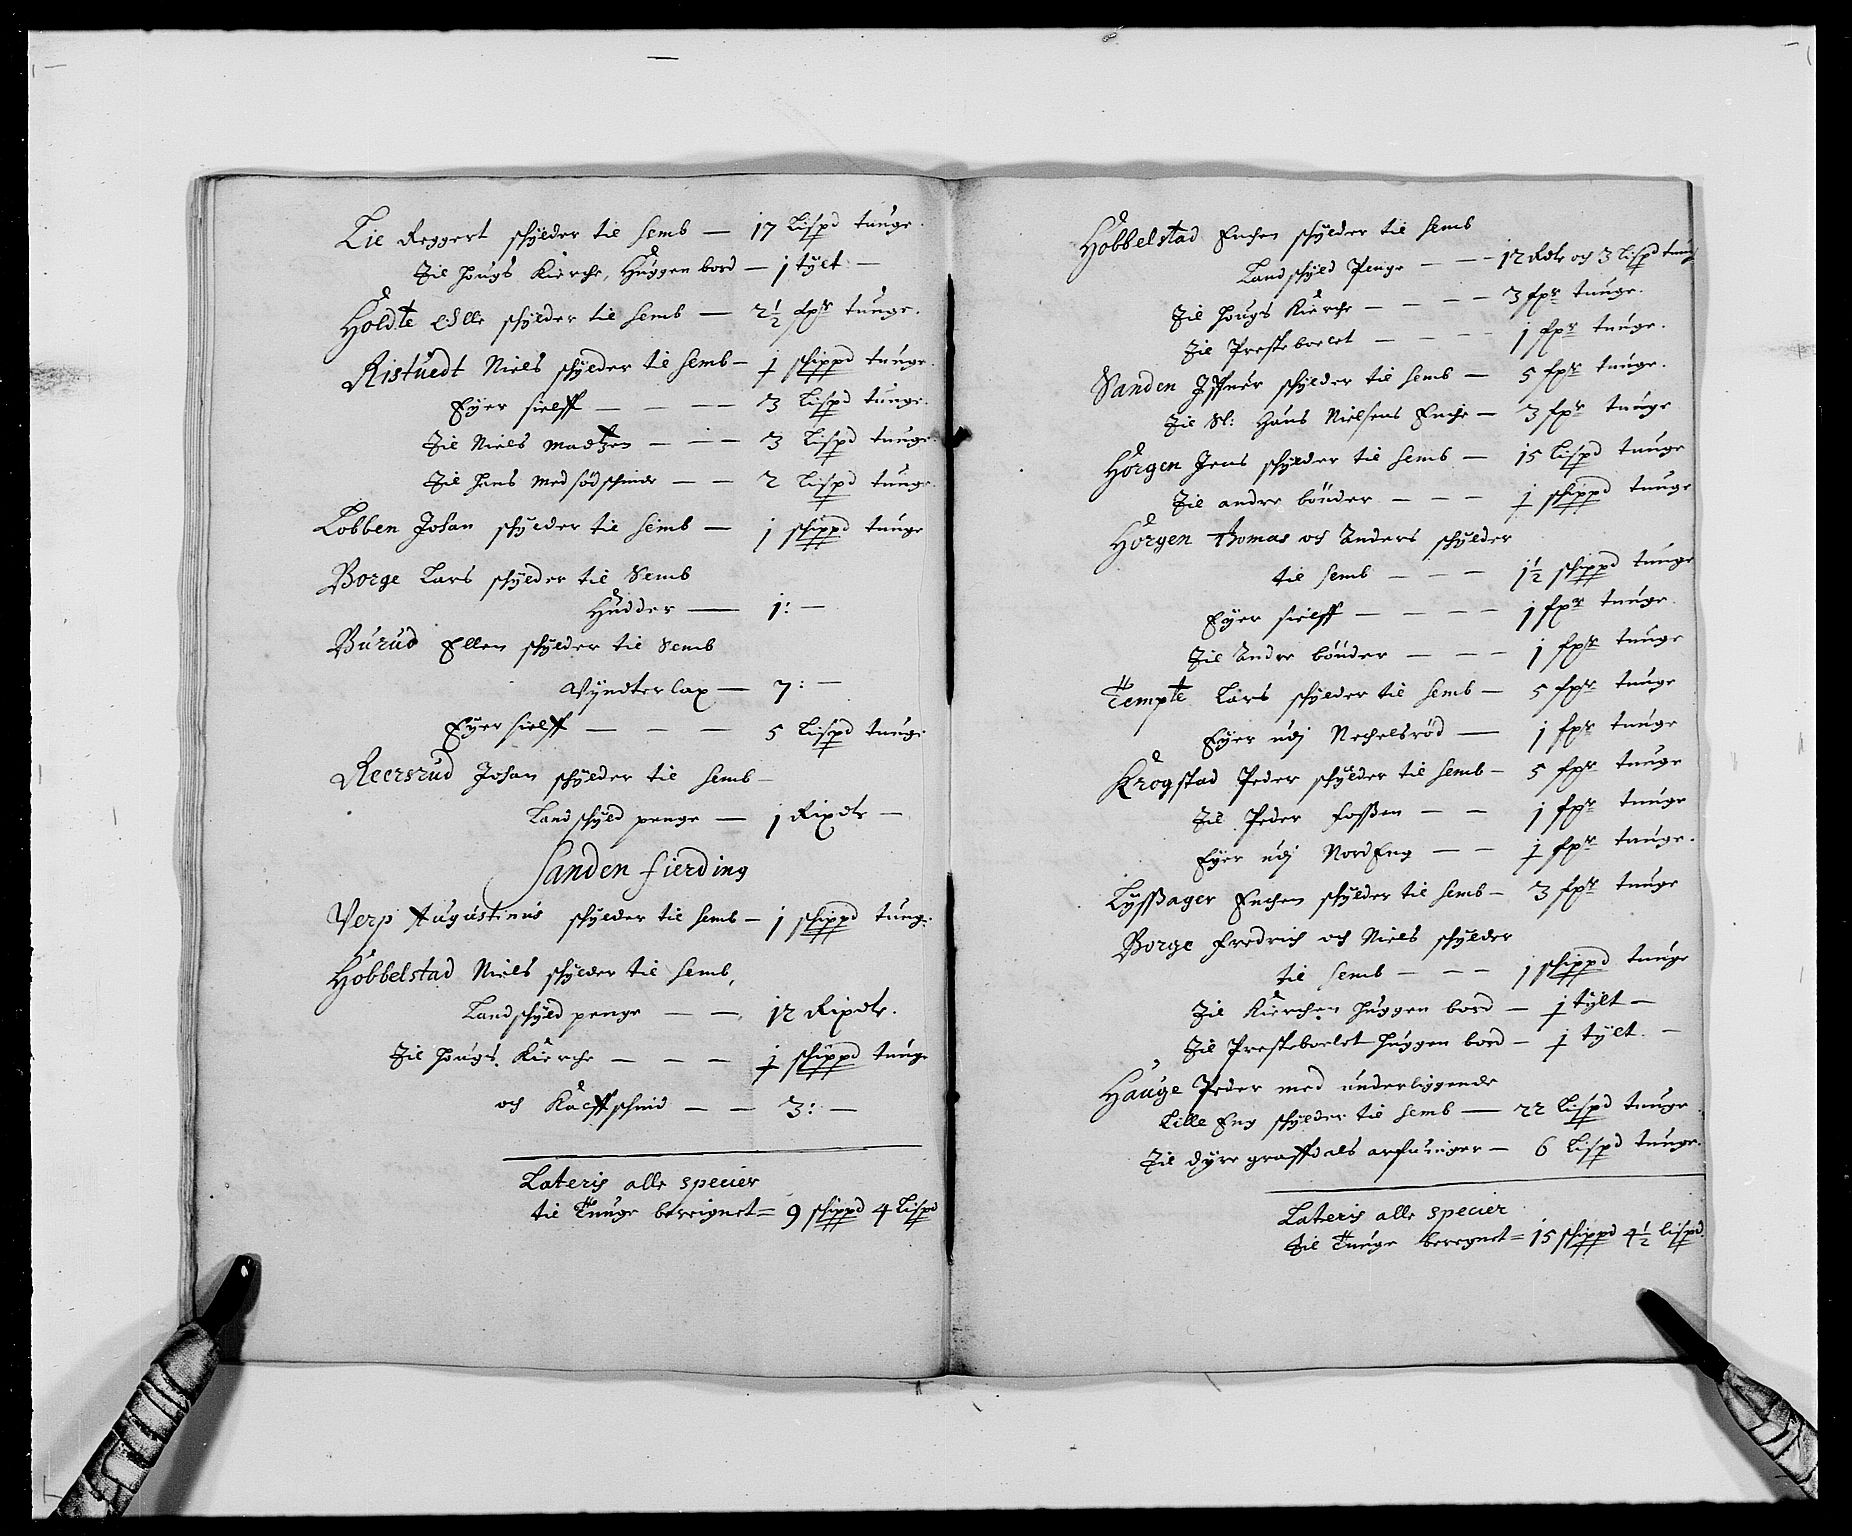 Lie Reggert schylder til Semb — 17 Lispd tunge.
Til Hougs Kirche, Huggen bord — 1 tylt —
Holdte Edlle schylder til Semb — 2½ fpr tunge.
Ristuedt Niels schylder til Semb — ½ schippd tunge.
Eyer sielff — — — 3 Lispd tunge.
Til Niels Madtzen — — — 3 Lispd tunge
Til Hans — — 2 Lispd tunge.
Lobben Johan schylder til Semb — 1 schippd tunge
Borge Lars schylder til Semb
Hudder — 1: —
Burud Ellen schylder til Semb
Vyndter lax — 7: —
Eyer sielff — — — 5 Lispd tunge
Reersrud Johan schylder til Semb —
Landschyld penge — 1 Rixdlr —
Sanden fierding
Verp Augustinus schylder til Semb — 1 schippd tung:
Hobbelstad Niels schylder til Semb,
Landschyld penge — — 12 Rixdlr.
Til Hougs Kierche — — — ½ schippd tunge
och Kalffschind — — 3: —
Lateris alle specier
til Tunge bereignet = 9 schippd 4 Lispd
Hobbelstad Enchen schylder til Semb
Landschyld Penge — — 12 Rdlr och 3 Lispd tung
Til Hougs Kierche — — — — 3 fpr tunge.
Til Prestebolet — — — 1 fpr tunge.
Sanden schylder til Semb — 5 fpr tunge.
Til Sl: Hans Nielsens Enche — 3 fpr tunge
Horgen Jens schylder til Semb — 15 Lispd tunge
Til andre bönder — — — ½ schippd tunge
Horgen Thomas och Anders schylder
til Semb — — — 1½ schippd tunge
Eyer sielff — — — — 1 fpr tunge.
Til Andre bönder — — — 1 fpr tunge
Tempte Lars schylder til Semb — 5 fpr tunge
Eyer udj Nechelsröd — 1 fpr tunge
Krogstad Peder schylder til Semb — 5 fpr tunge
Til Peder Fossen — — 1 fpr tunge
Eyer udj NordEng — — ½ fpr tunge.
Lyssager Enchen schylder til Semb — 3 fpr tunge
Borge Fredrich och Niels schylder
til Semb — — — 1 schippd tunge
Til Kierchen Huggen bord — ½ tylt —
Til Prestebolet Huggen bord — ½ tylt. —
Hauge Peder med underliggende
Lille Eng schylder til Semb — 22 Lispd tunge
Til Dyre graffdals arfuinger — 6 Lispd tunge.
Lateris alle specier
til Tunge beregnet = 15 schippd 4½ lispd.